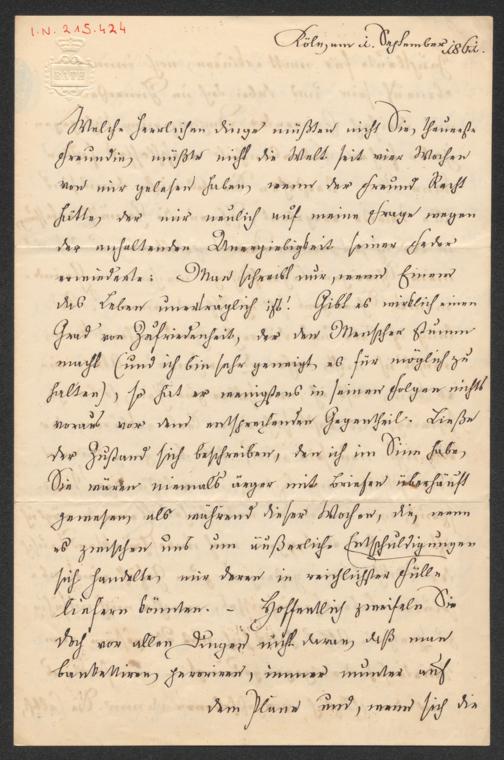 I.N. 215.424
BATH
Köln, am 1. September 1861.
Welche herrlichen Dinge müßten nicht Sie, theuerste
Freundin, müßte nicht die Welt seit vier Wochen
von mir gelesen haben, wenn der Freund Recht
hätte, der mir neulich auf meine Frage wegen
der anhaltenden Unergiebigkeit seiner Feder
erwiederte: Man schreibt nur, wenn Einem
das Leben unerträglich ist! Gibt es wirklich einen
Grad von Zufriedenheit, der den Menschen stumm
macht (und ich bin sehr geneigt es für möglich zu
halten), so hat er wenigstens in seinen Folgen nichts
voraus vor dem entsprechenden Gegentheil. Ließe
der Zustand sich beschreiben, den ich im Sinn habe,
Sie wären niemals ärger mit Briefen überhäuft
gewesen, als während dieser Wochen, die, wenn
es zwischen uns um äußerliche Entschuldigungen
sich handelte, mir deren in reichlichster Fülle
liefern könnten. – Hoffentlich zweifeln Sie
doch vor allen Dingen nicht daran, daß man
bankettiren, peroriren, immer munter auf
dem Plane und, wenn sich die